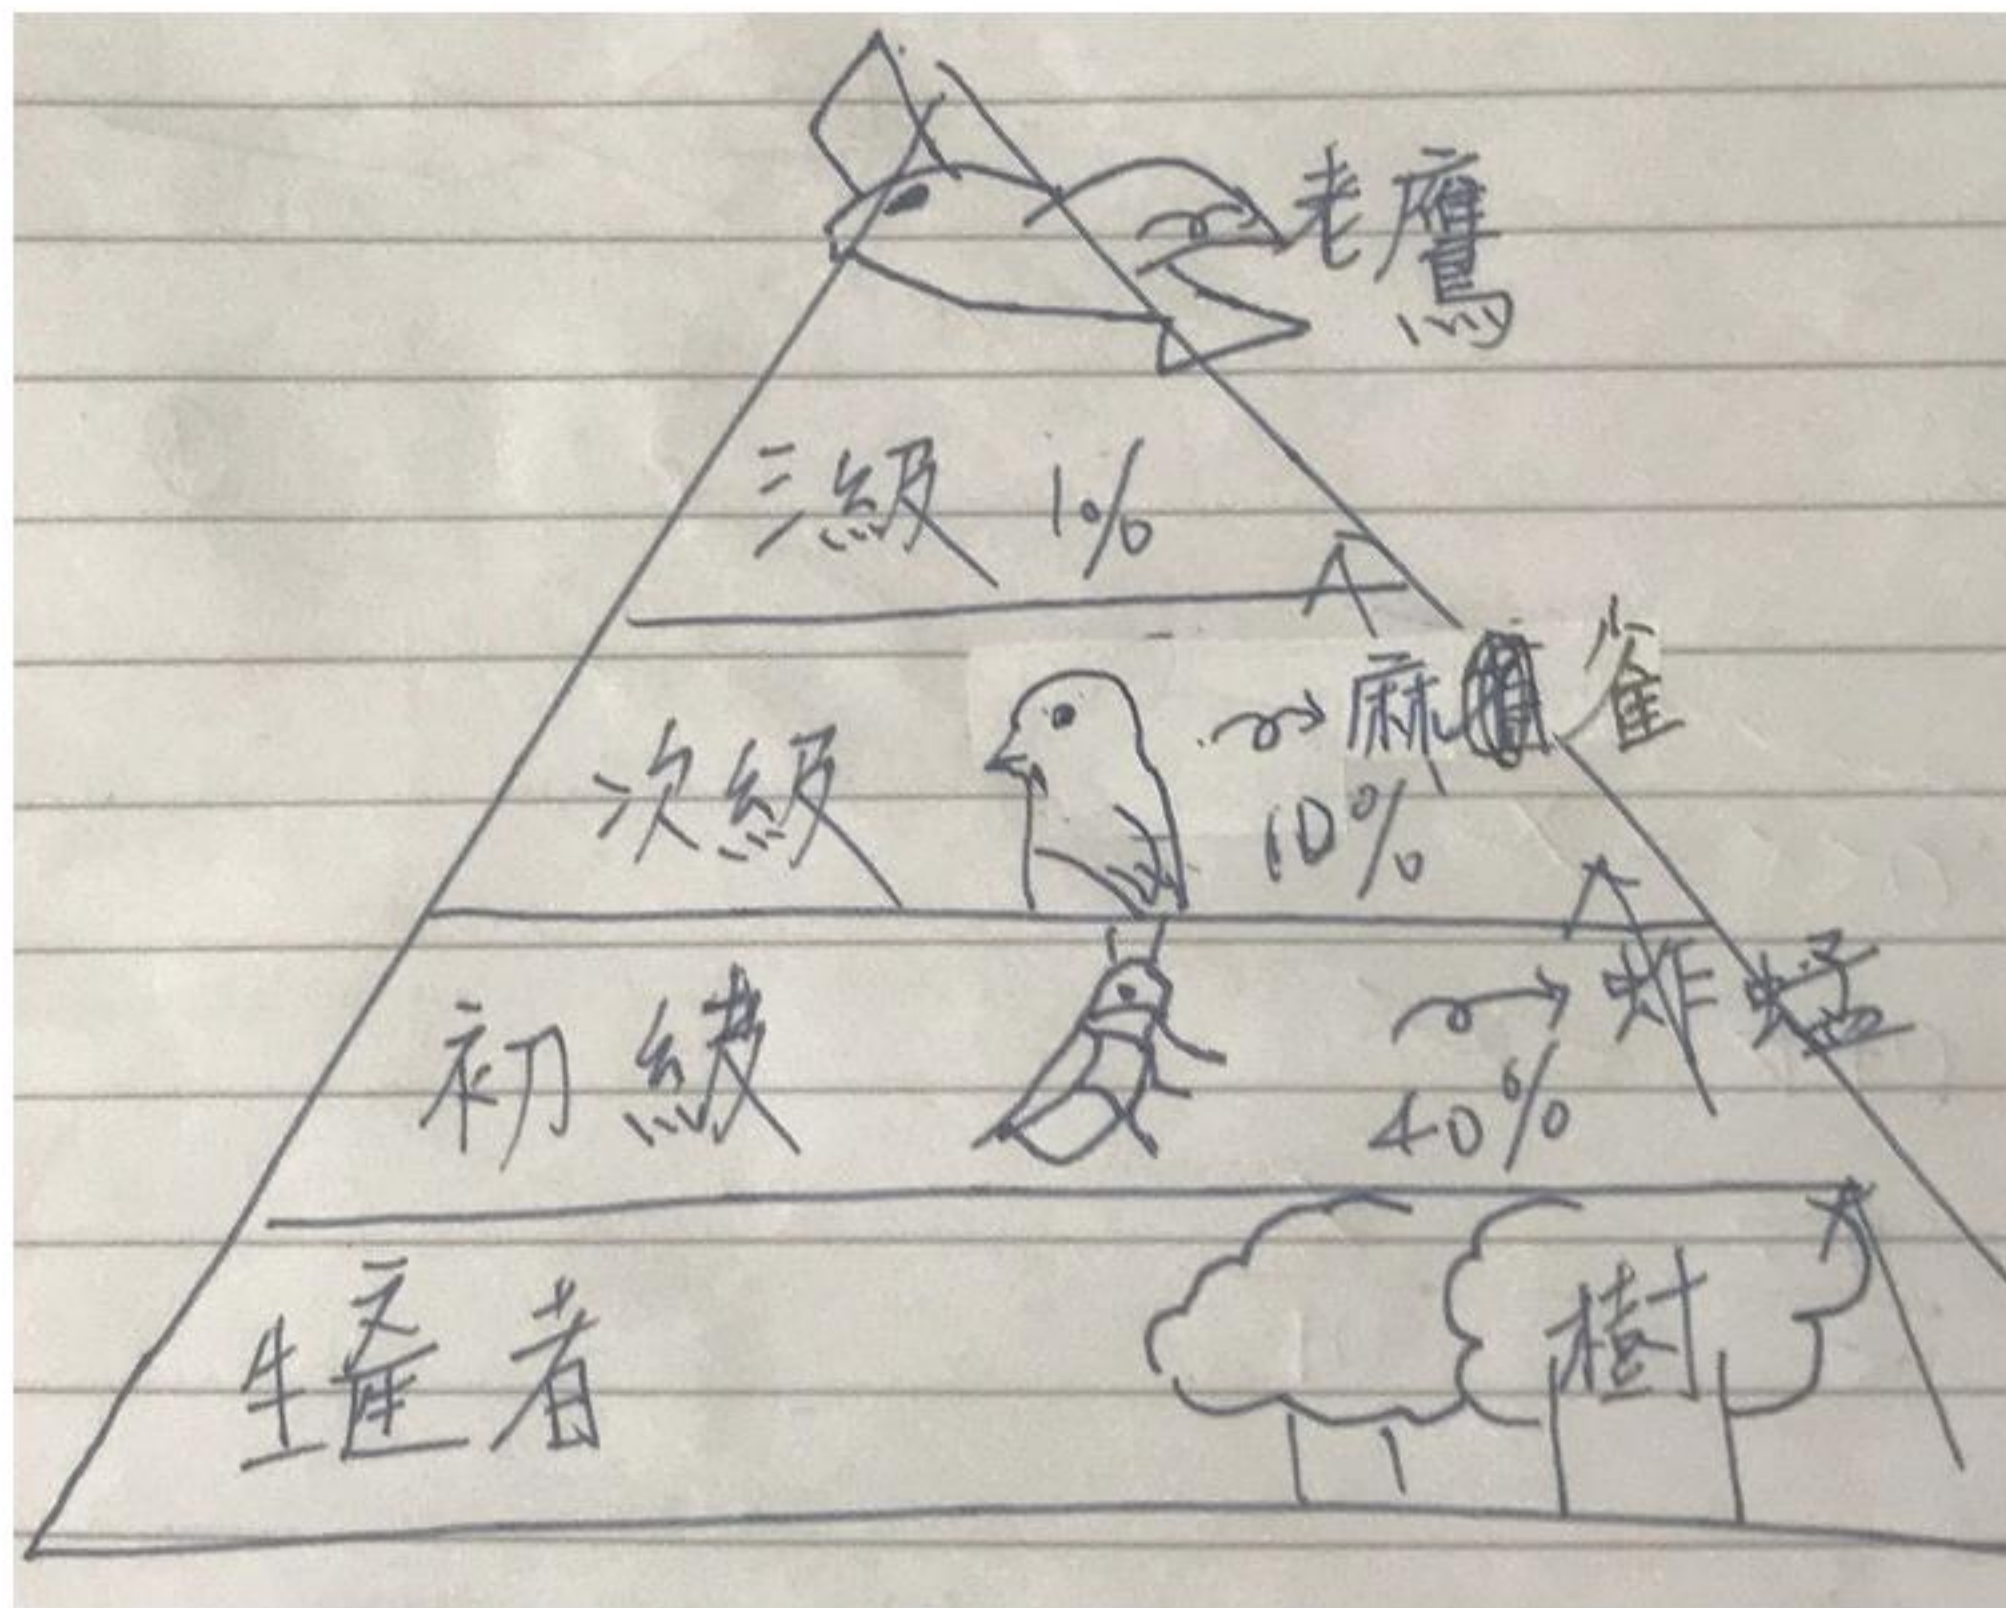 老鷹
三級 1%
次級 麻雀
10%
初級 蚱蜢
40%
生產者 樹